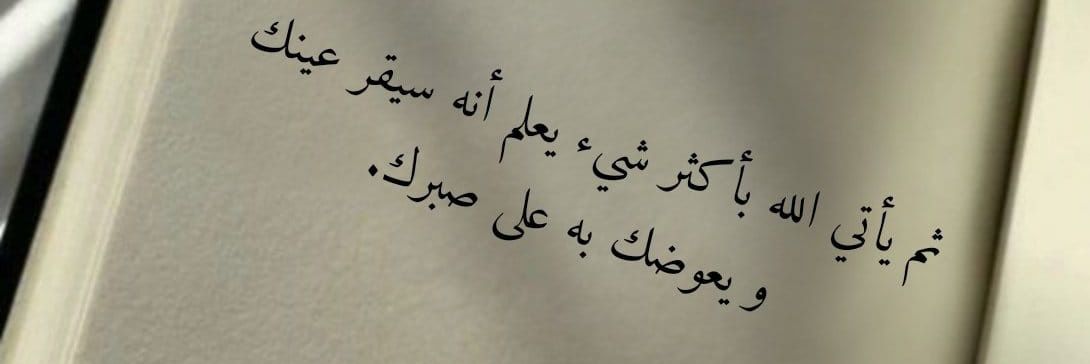 ثم يأتي الله بأكثر شيء يعلم أنه سيقر عينك
و يعوضك به على صبرك.